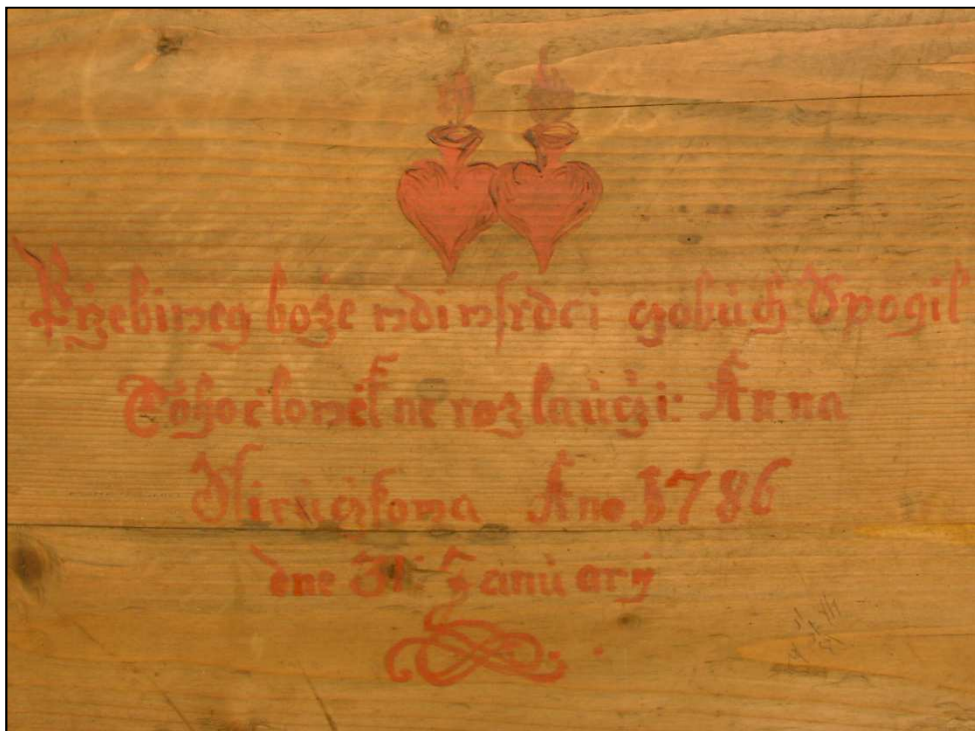 Przebiweg boże wdiwsrdci czobúch Spogil
Tohoclowěk ne rozlaúczi: Anna
Nirúczkowa Ano 1786
dne 31 Januarÿ